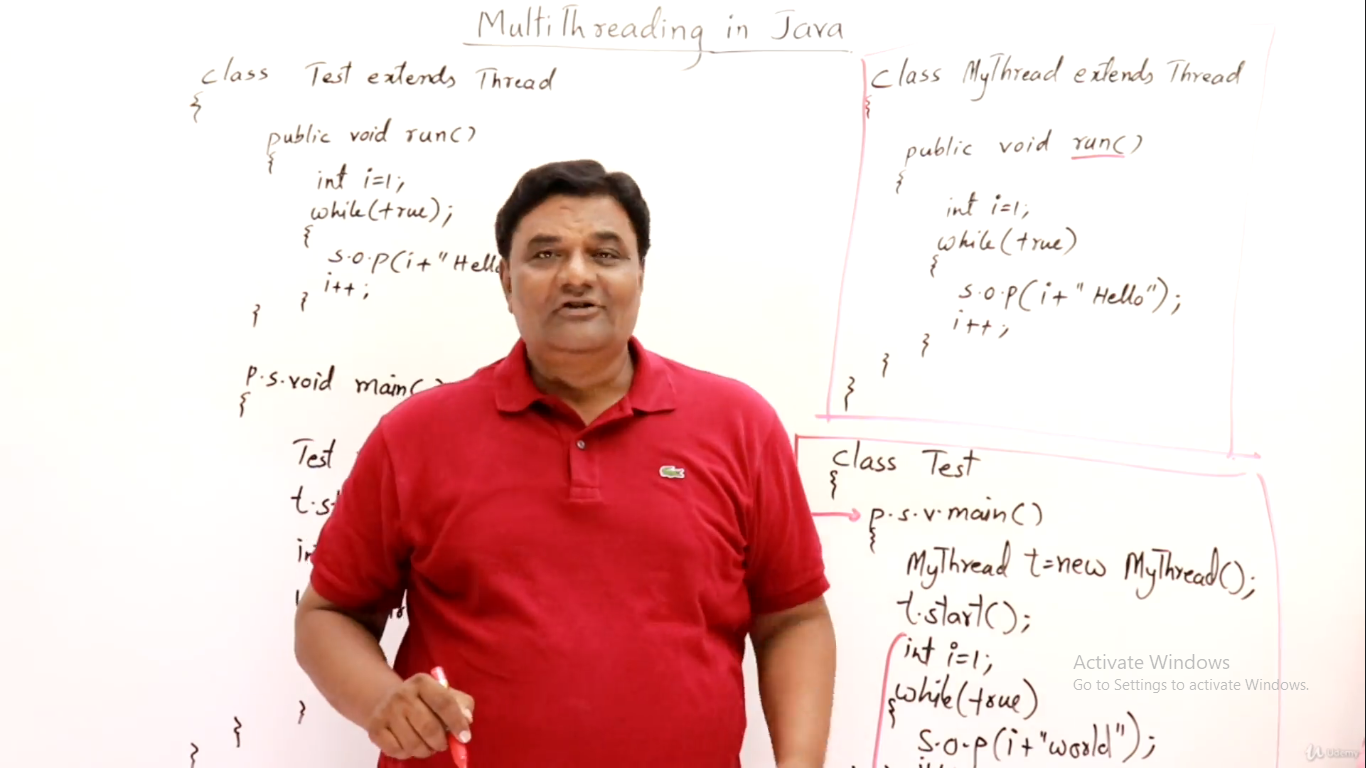 MultiThreading in Java
class Test extends Thread
{
public void run()
{
int i=1;
while(true);
{
s.o.p(i+"Hello
i++;
}
}
p.s.void main()
{
Test
t.st
int
}
}
}
class MyThread extends Thread
{
public void run()
{
int i=1;
while(true)
{
s.o.p(i+"Hello");
i++;
}
}
}
class Test
{
p.s.v.main()
{
MyThread t=new MyThread();
t.start();
int i=1;
while(true)
{
s.o.p(i+"world");
Activate Windows
Go to Settings to activate Windows.
Udemy